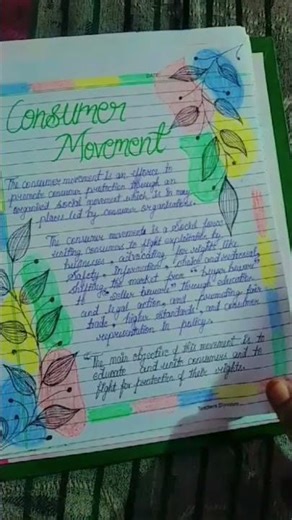 Consumer
Movement
The consumer movement is an efforce to
promote consumer protection through an
organized social movement which is in many
places led by consumer organizations.
The consumer movements is a social force
uniting consumers to fight exploitation by
businesses, advocating for rights like
safety, Information, choice and redressal
shifting the market from "buyer beware"
to "seller beware" through education
and legal action and promoting fair
trade, higher standards, and consumer
representation in policy.
The main objective of this movement is to
educate and unit consumers and to
fight for protection of their rights.